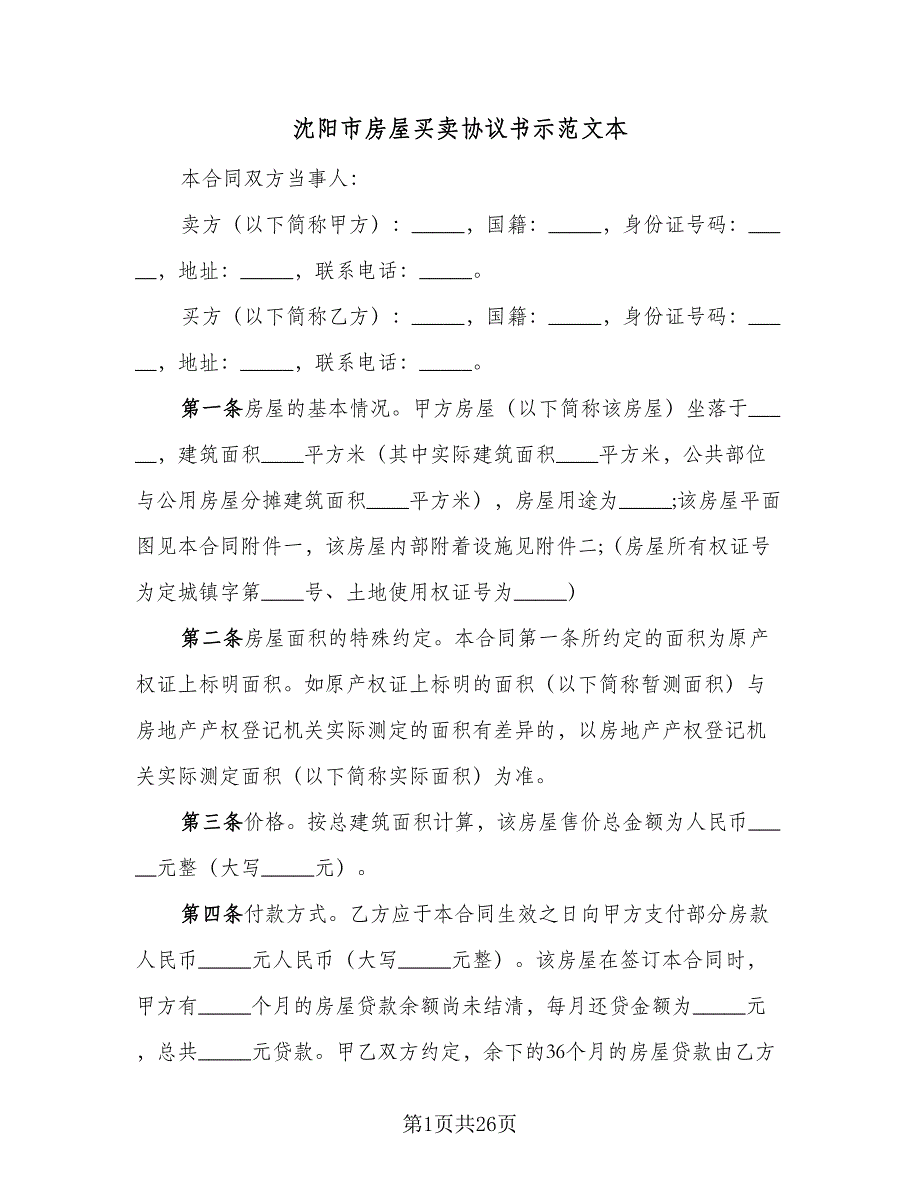 沈阳市房屋买卖协议书示范文本
本合同双方当事人：
卖方（以下简称甲方）：_____，国籍：_____，身份证号码：___
__，地址：_____，联系电话：_____。
买方（以下简称乙方）：_____，国籍：_____，身份证号码：___
__，地址：_____，联系电话：_____。
第一条房屋的基本情况。甲方房屋（以下简称该房屋）坐落于___
__，建筑面积____平方米（其中实际建筑面积____平方米，公共部位
与公用房屋分摊建筑面积____平方米），房屋用途为_____;该房屋平面
图见本合同附件一，该房屋内部附着设施见附件二;（房屋所有权证号
为定城镇字第____号、土地使用权证号为_____）
第二条房屋面积的特殊约定。本合同第一条所约定的面积为原产
权证上标明面积。如原产权证上标明的面积（以下简称暂测面积）与
房地产产权登记机关实际测定的面积有差异的，以房地产产权登记机
关实际测定面积（以下简称实际面积）为准。
第三条价格。按总建筑面积计算，该房屋售价总金额为人民币___
__元整（大写_____元）。
第四条付款方式。乙方应于本合同生效之日向甲方支付部分房款
人民币_____元人民币（大写_____元整）。该房屋在签订本合同时，
甲方有_____个月的房屋贷款余额尚未结清，每月还贷金额为_____元
，总共_____元贷款。甲乙双方约定，余下的36个月的房屋贷款由乙方
第1页共26页